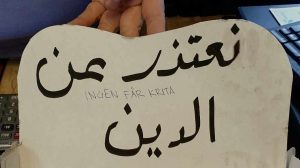 نعتذر عن
INGEN FÅR KRITA
الدين